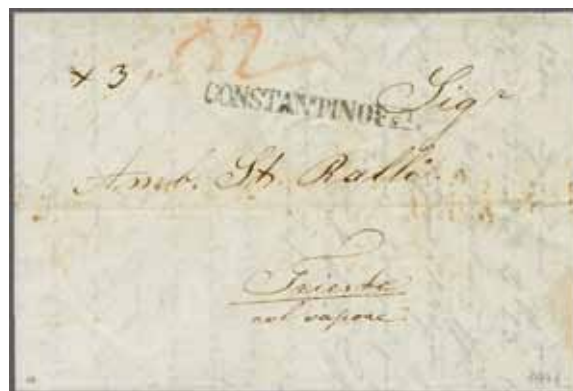 32
x 3
CONSTANTINOPEL.
Sigr
Amb. St. Ralli
Trieste
col vapore